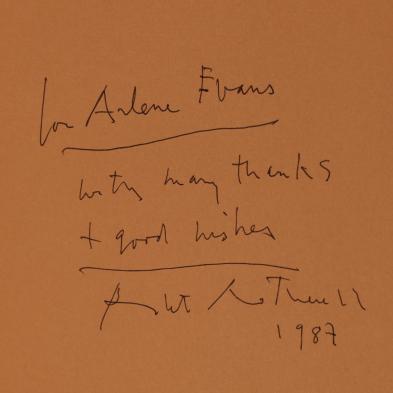 for Arlene Evans
with many thanks
+ good wishes
Robt Motherwell
1987